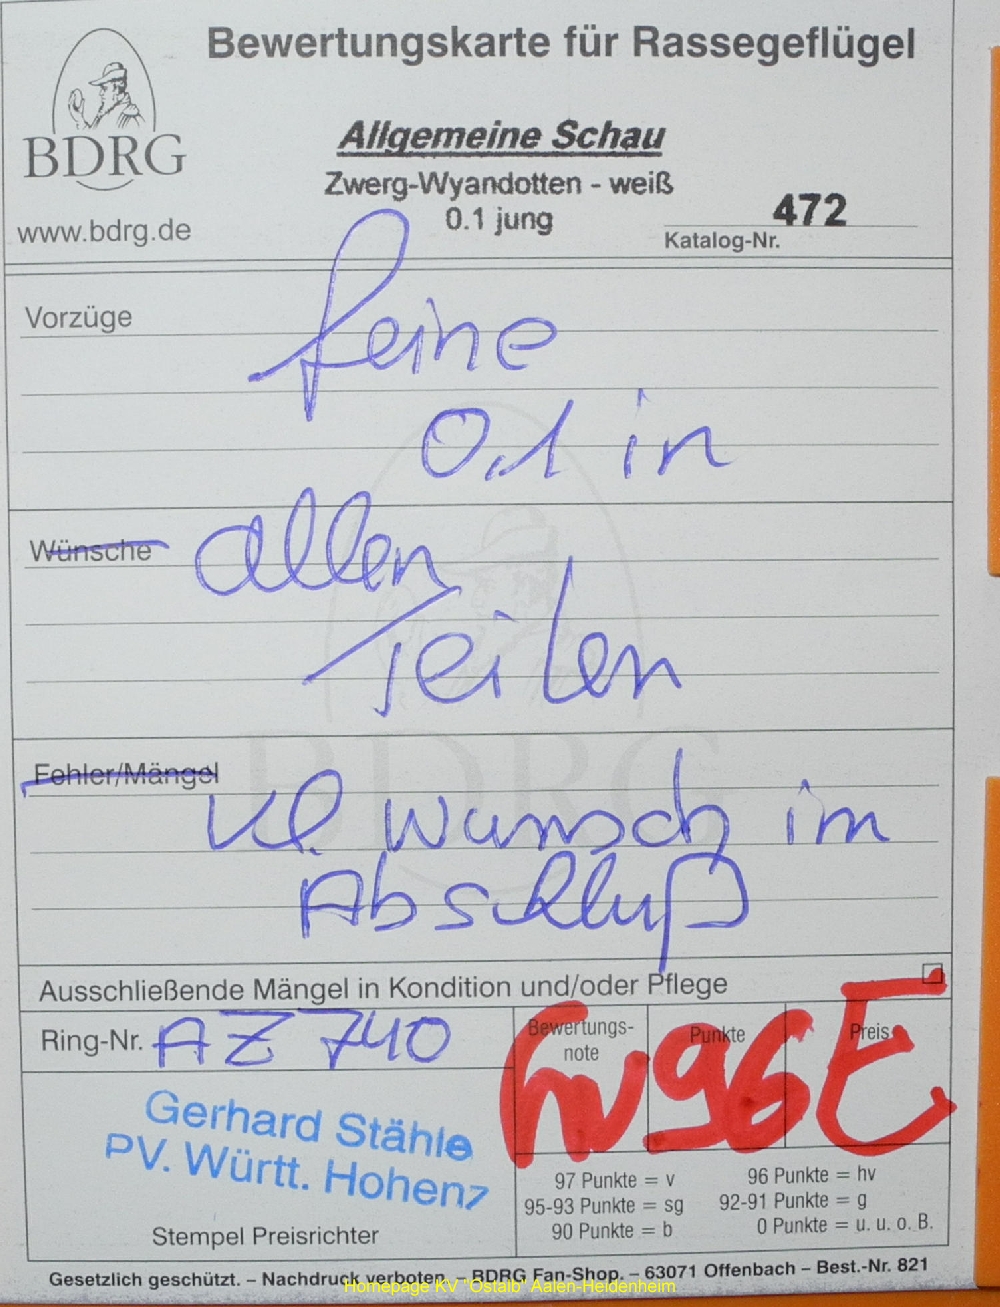 Bewertungskarte für Rassegeflügel
BDRG
www.bdrg.de
Allgemeine Schau
Zwerg-Wyandotten - weiß
0.1 jung
472
Katalog-Nr.
Vorzüge
feine
0,1 in
Wünsche
allen
Teilen
Fehler/Mängel
kl. Wunsch im
Abschluß
BDRG
Ausschließende Mängel in Kondition und/oder Pflege
Ring-Nr. AZ 740
Bewertungs-
note
Punkte
Preis
hv 96 E
Gerhard Stähle
PV. Württ. Hohenz
Stempel Preisrichter
97 Punkte = v
96 Punkte = hv
95-93 Punkte = sg
92-91 Punkte = g
90 Punkte = b
0 Punkte = u. u. o. B.
Gesetzlich geschützt. – Nachdruck verboten. – BDRG Fan-Shop. – 63071 Offenbach – Best.-Nr. 821
Homepage KV "Ostalb" Aalen-Heidenheim